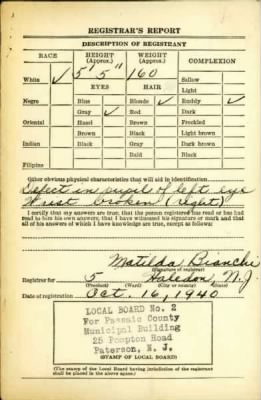 REGISTRAR'S REPORT
DESCRIPTION OF REGISTRANT
RACE HEIGHT (Approx.) WEIGHT (Approx.) COMPLEXION
White ✓ 5' 5" 160 Sallow
EYES HAIR Light
Negro Blue Blonde ✓ Ruddy ✓
Gray ✓ Red Dark
Oriental Hazel Brown Freckled
Brown Black Light brown
Indian Black Gray Dark brown
Bald Black
Filipino
Other obvious physical characteristics that will aid in identification
Defect in pupil of left eye
Wrist broken (right)
I certify that my answers are true; that the person registered has read or has had
read to him his own answers; that I have witnessed his signature or mark and that
all of his answers of which I have knowledge are true, except as follows:
Matilda Bianchi
(Signature of registrar)
Registrar for 5 Haledon N.J.
(Precinct) (Ward) (City or county) (State)
Date of registration Oct. 16, 1940
LOCAL BOARD No. 2
For Passaic County
Municipal Building
25 Pompton Road
Paterson, N. J.
(STAMP OF LOCAL BOARD)
(The stamp of the Local Board having jurisdiction of the registrant
shall be placed in the above space.)